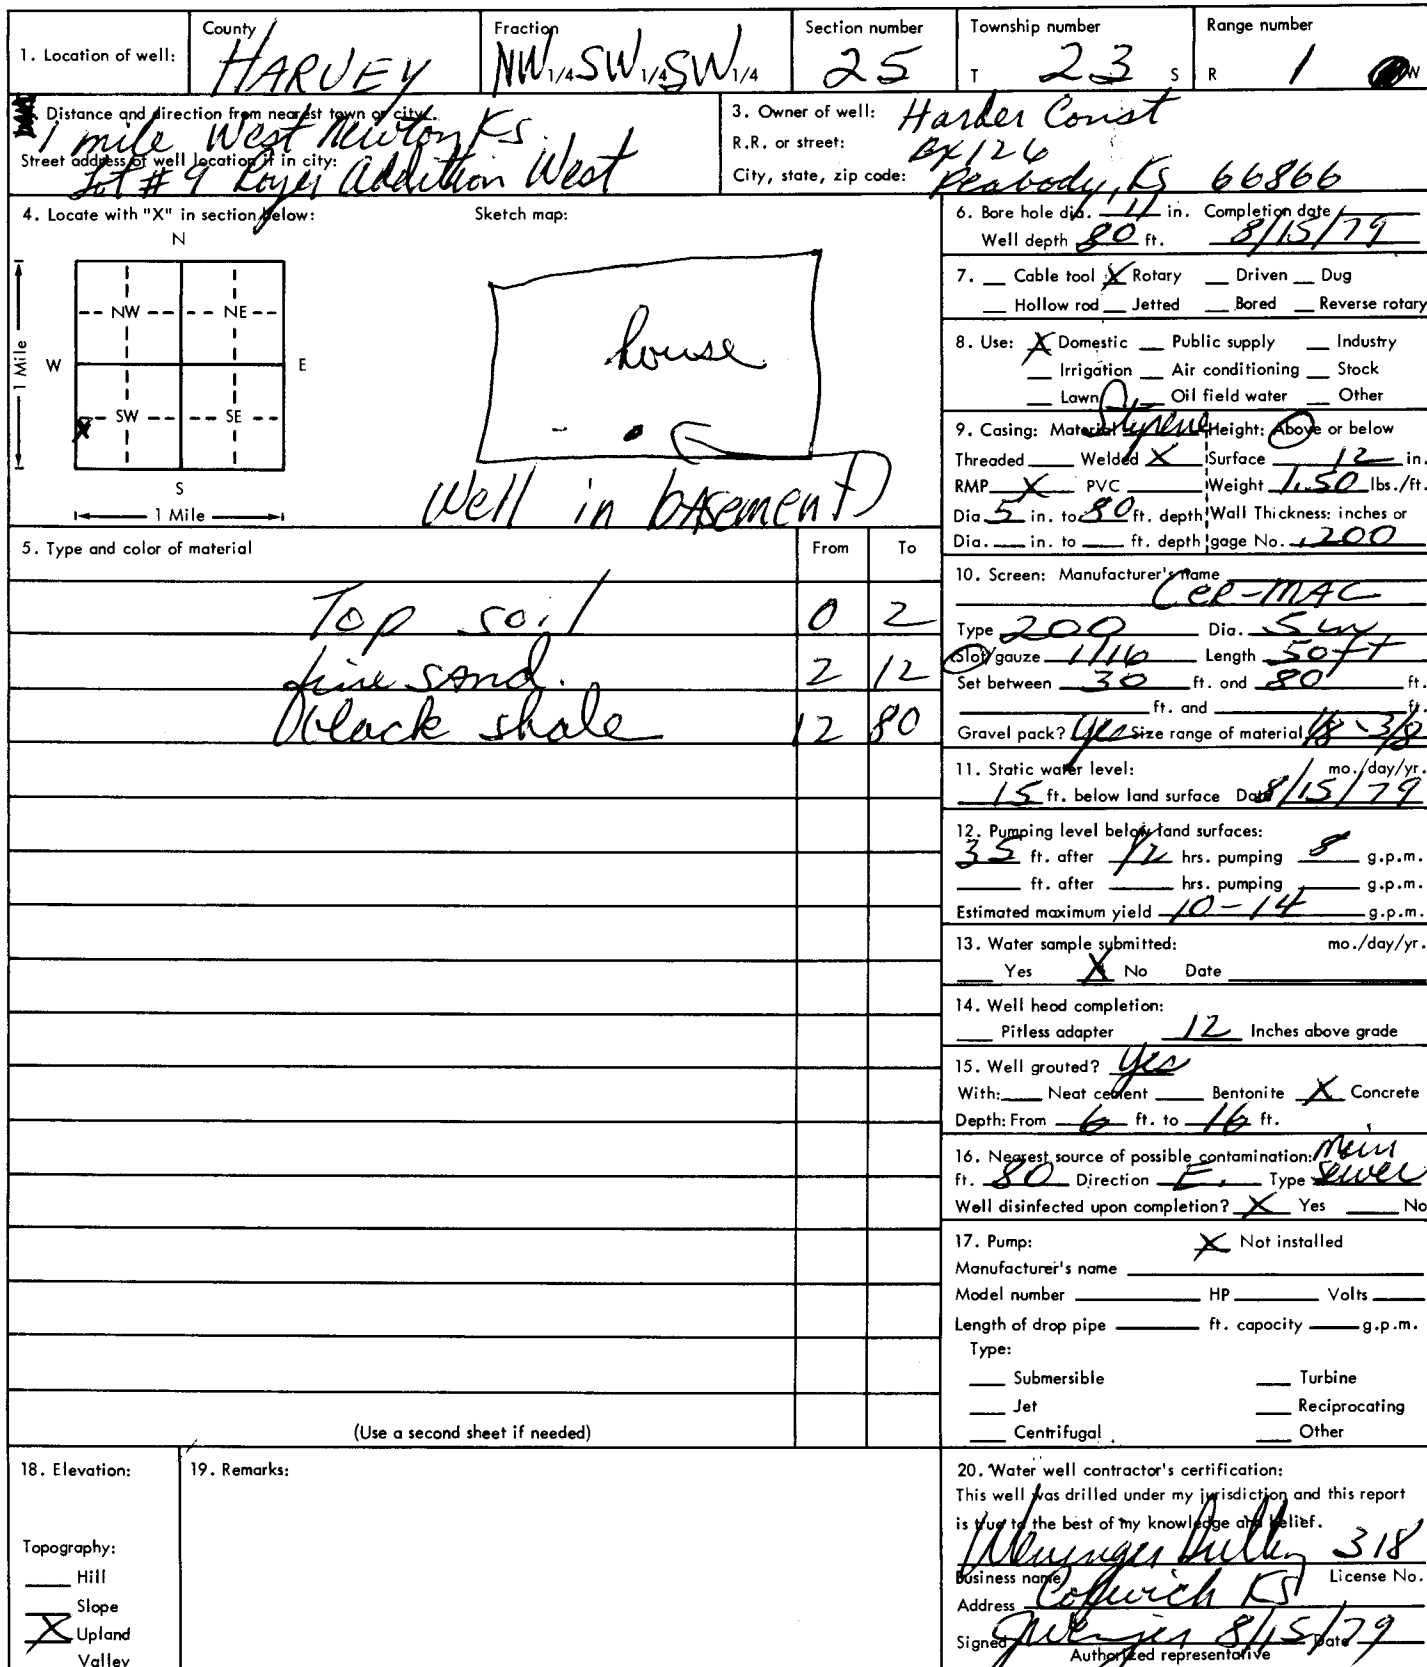 1. Location of well:
County
HARVEY
Fraction
NW 1/4 SW 1/4 SW 1/4
Section number
25
Township number
T 23 S
Range number
R 1 W
Distance and direction from nearest town or city:
1 mile West Newton Ks.
Street address of well location if in city:
Lot # 9 Royer Addition West
3. Owner of well: Harder Const
R.R. or street: Bx 126
City, state, zip code: Peabody, Ks 66866
4. Locate with "X" in section below:
N
NW NE
W E
SW SE
X
S
1 Mile
1 Mile
Sketch map:
house
Well in basement
5. Type and color of material From To
Top soil 0 2
fine sand. 2 12
black shale 12 80
(Use a second sheet if needed)
6. Bore hole dia. 11 in. Completion date
Well depth 80 ft. 8/15/79
7. __ Cable tool X Rotary __ Driven __ Dug
__ Hollow rod __ Jetted __ Bored __ Reverse rotary
8. Use: X Domestic __ Public supply __ Industry
__ Irrigation __ Air conditioning __ Stock
__ Lawn __ Oil field water __ Other
9. Casing: Material Styrene Height: Above or below
Threaded __ Welded X Surface 12 in.
RMP X PVC __ Weight 1.50 lbs./ft.
Dia. 5 in. to 80 ft. depth Wall Thickness: inches or
Dia. __ in. to __ ft. depth gage No. .200
10. Screen: Manufacturer's name
Cer-MAC
Type 200 Dia. 5 in
Slot/gauze 1/16 Length 50 ft
Set between 30 ft. and 80 ft.
__ ft. and __ ft.
Gravel pack? Yes Size range of material 1/8 - 3/8
11. Static water level: mo./day/yr.
15 ft. below land surface Date 8/15/79
12. Pumping level below land surfaces:
35 ft. after 1/2 hrs. pumping 8 g.p.m.
__ ft. after __ hrs. pumping __ g.p.m.
Estimated maximum yield 10-14 g.p.m.
13. Water sample submitted: mo./day/yr.
__ Yes X No Date __
14. Well head completion:
__ Pitless adapter 12 Inches above grade
15. Well grouted? yes
With: __ Neat cement __ Bentonite X Concrete
Depth: From 6 ft. to 16 ft.
16. Nearest source of possible contamination: Main
ft. 80 Direction E. Type sewer
Well disinfected upon completion? X Yes __ No
17. Pump: X Not installed
Manufacturer's name __
Model number __ HP __ Volts __
Length of drop pipe __ ft. capacity __ g.p.m.
Type:
__ Submersible __ Turbine
__ Jet __ Reciprocating
__ Centrifugal __ Other
18. Elevation:
Topography:
__ Hill
__ Slope
X Upland
Valley
19. Remarks:
20. Water well contractor's certification:
This well was drilled under my jurisdiction and this report
is true to the best of my knowledge and belief.
318
Business name License No.
Address Colwich Ks
Signed 8/15/79 Date
Authorized representative